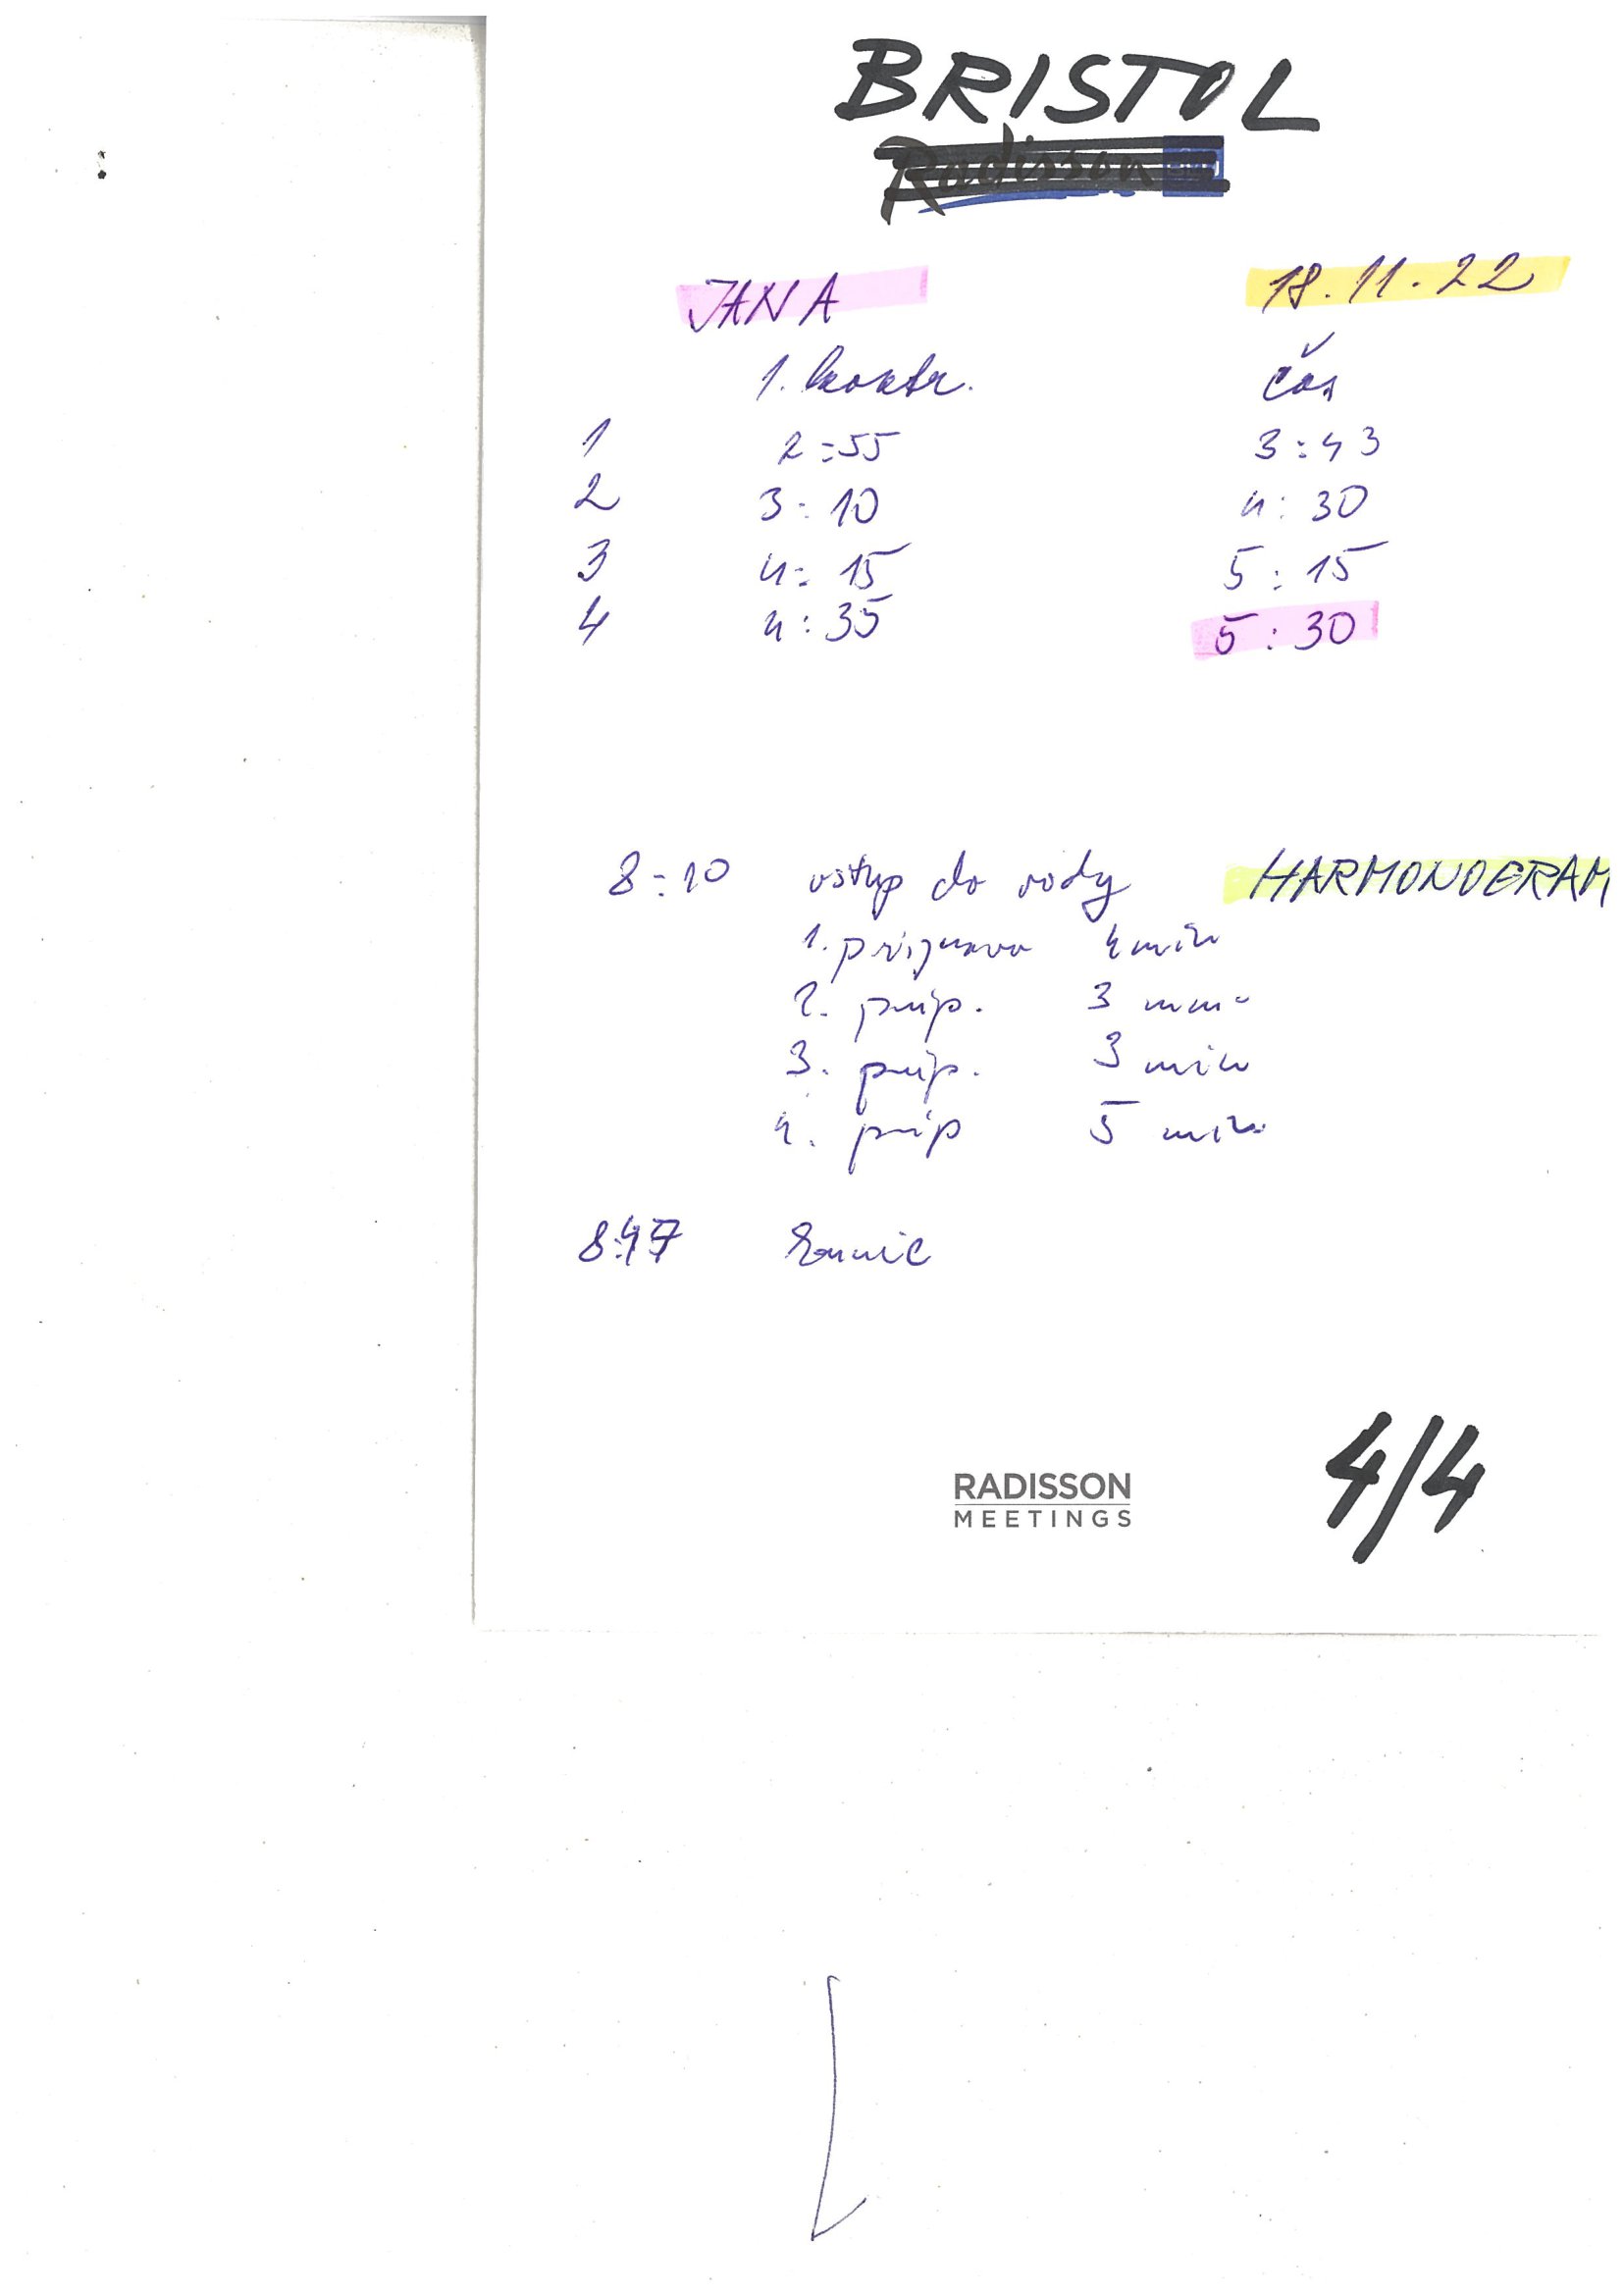 BRISTOL
Radisson
JANA 18.11.22
1. kontr. čas
1 2:55 3:43
2 3:10 4:30
3 4:15 5:15
4 4:35 5:30
8:10 vstup do vody HARMONOGRAM
1. príprava 4 min
2. príp. 3 min
3. príp. 3 min
4. príp 5 min
8:47
RADISSON
MEETINGS
4/4